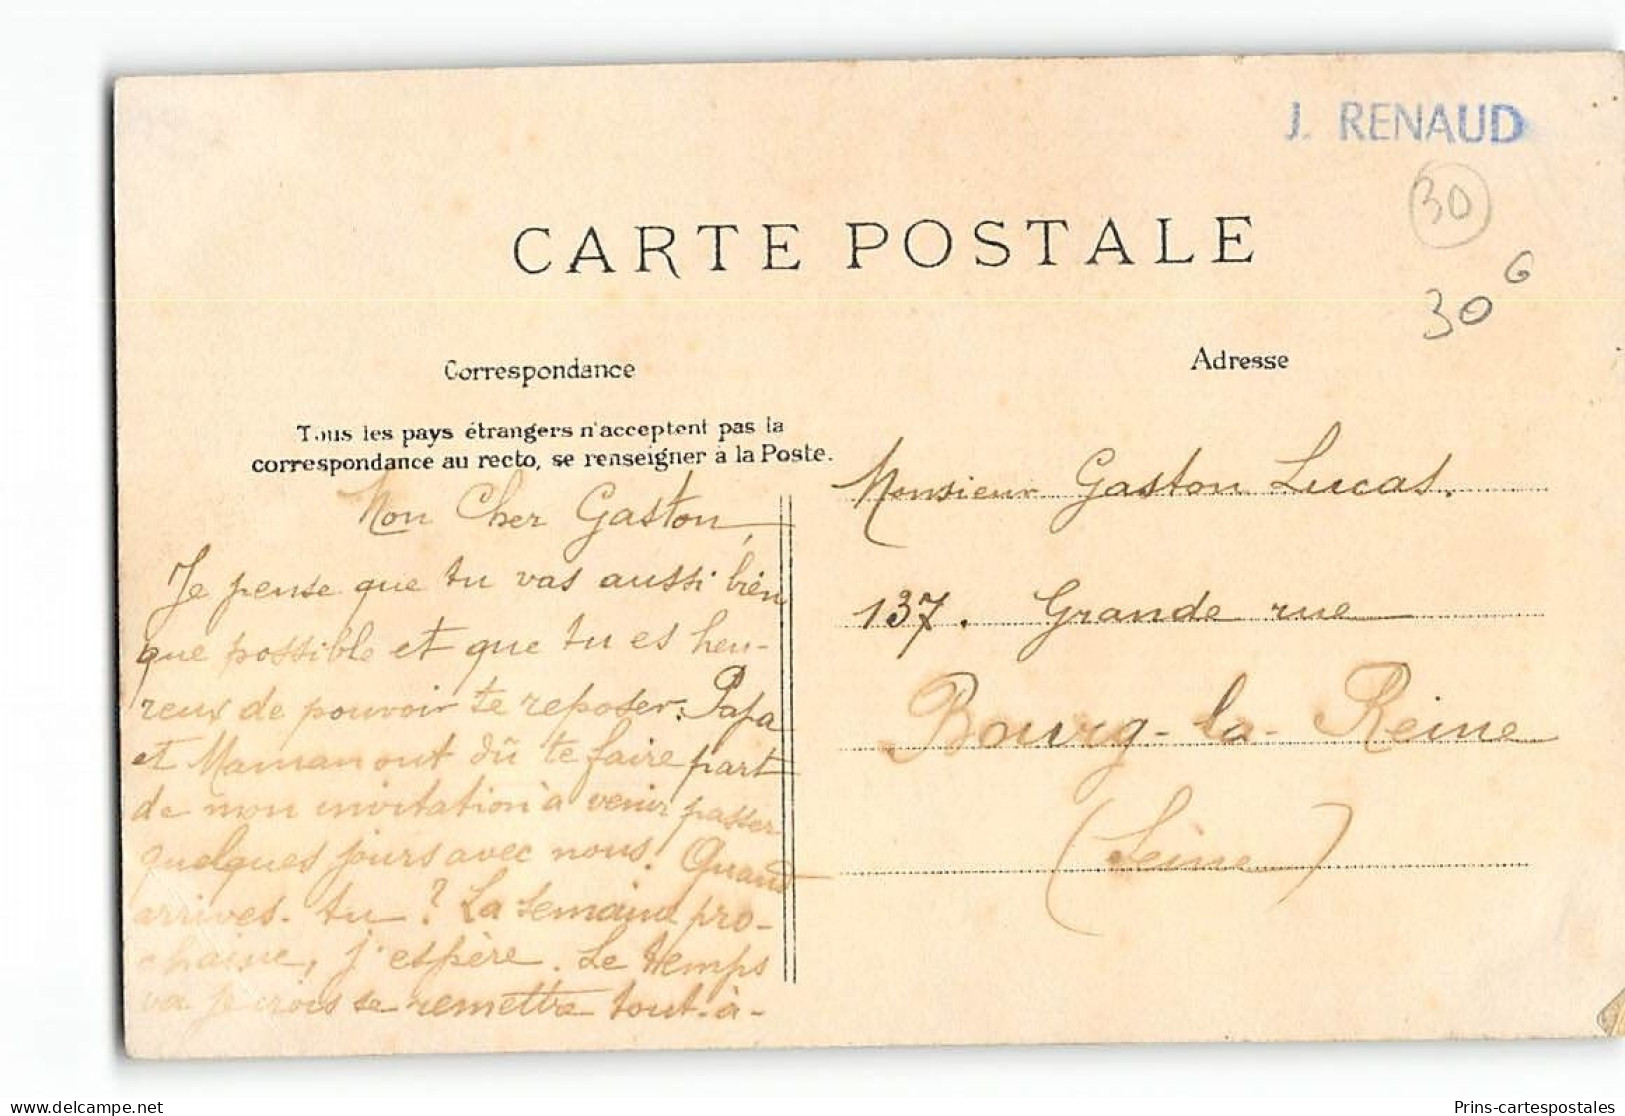 J. RENAUD
30
30 6
CARTE POSTALE
Correspondance
Tous les pays étrangers n'acceptent pas la
correspondance au recto, se renseigner à la Poste.
Mon Cher Gaston,
Je pense que tu vas aussi bien
que possible et que tu es heu-
reux de pouvoir te reposer. Papa
et Maman ont dû te faire part
de mon invitation à venir passer
quelques jours avec nous. Quand
arrives-tu ? La semaine pro-
chaine, j'espère. Le temps
va je crois se remettre tout-à-
Adresse
Monsieur Gaston Lucas.
137. Grande rue
Bourg-la-Reine
(Seine)
Prins-cartespostales